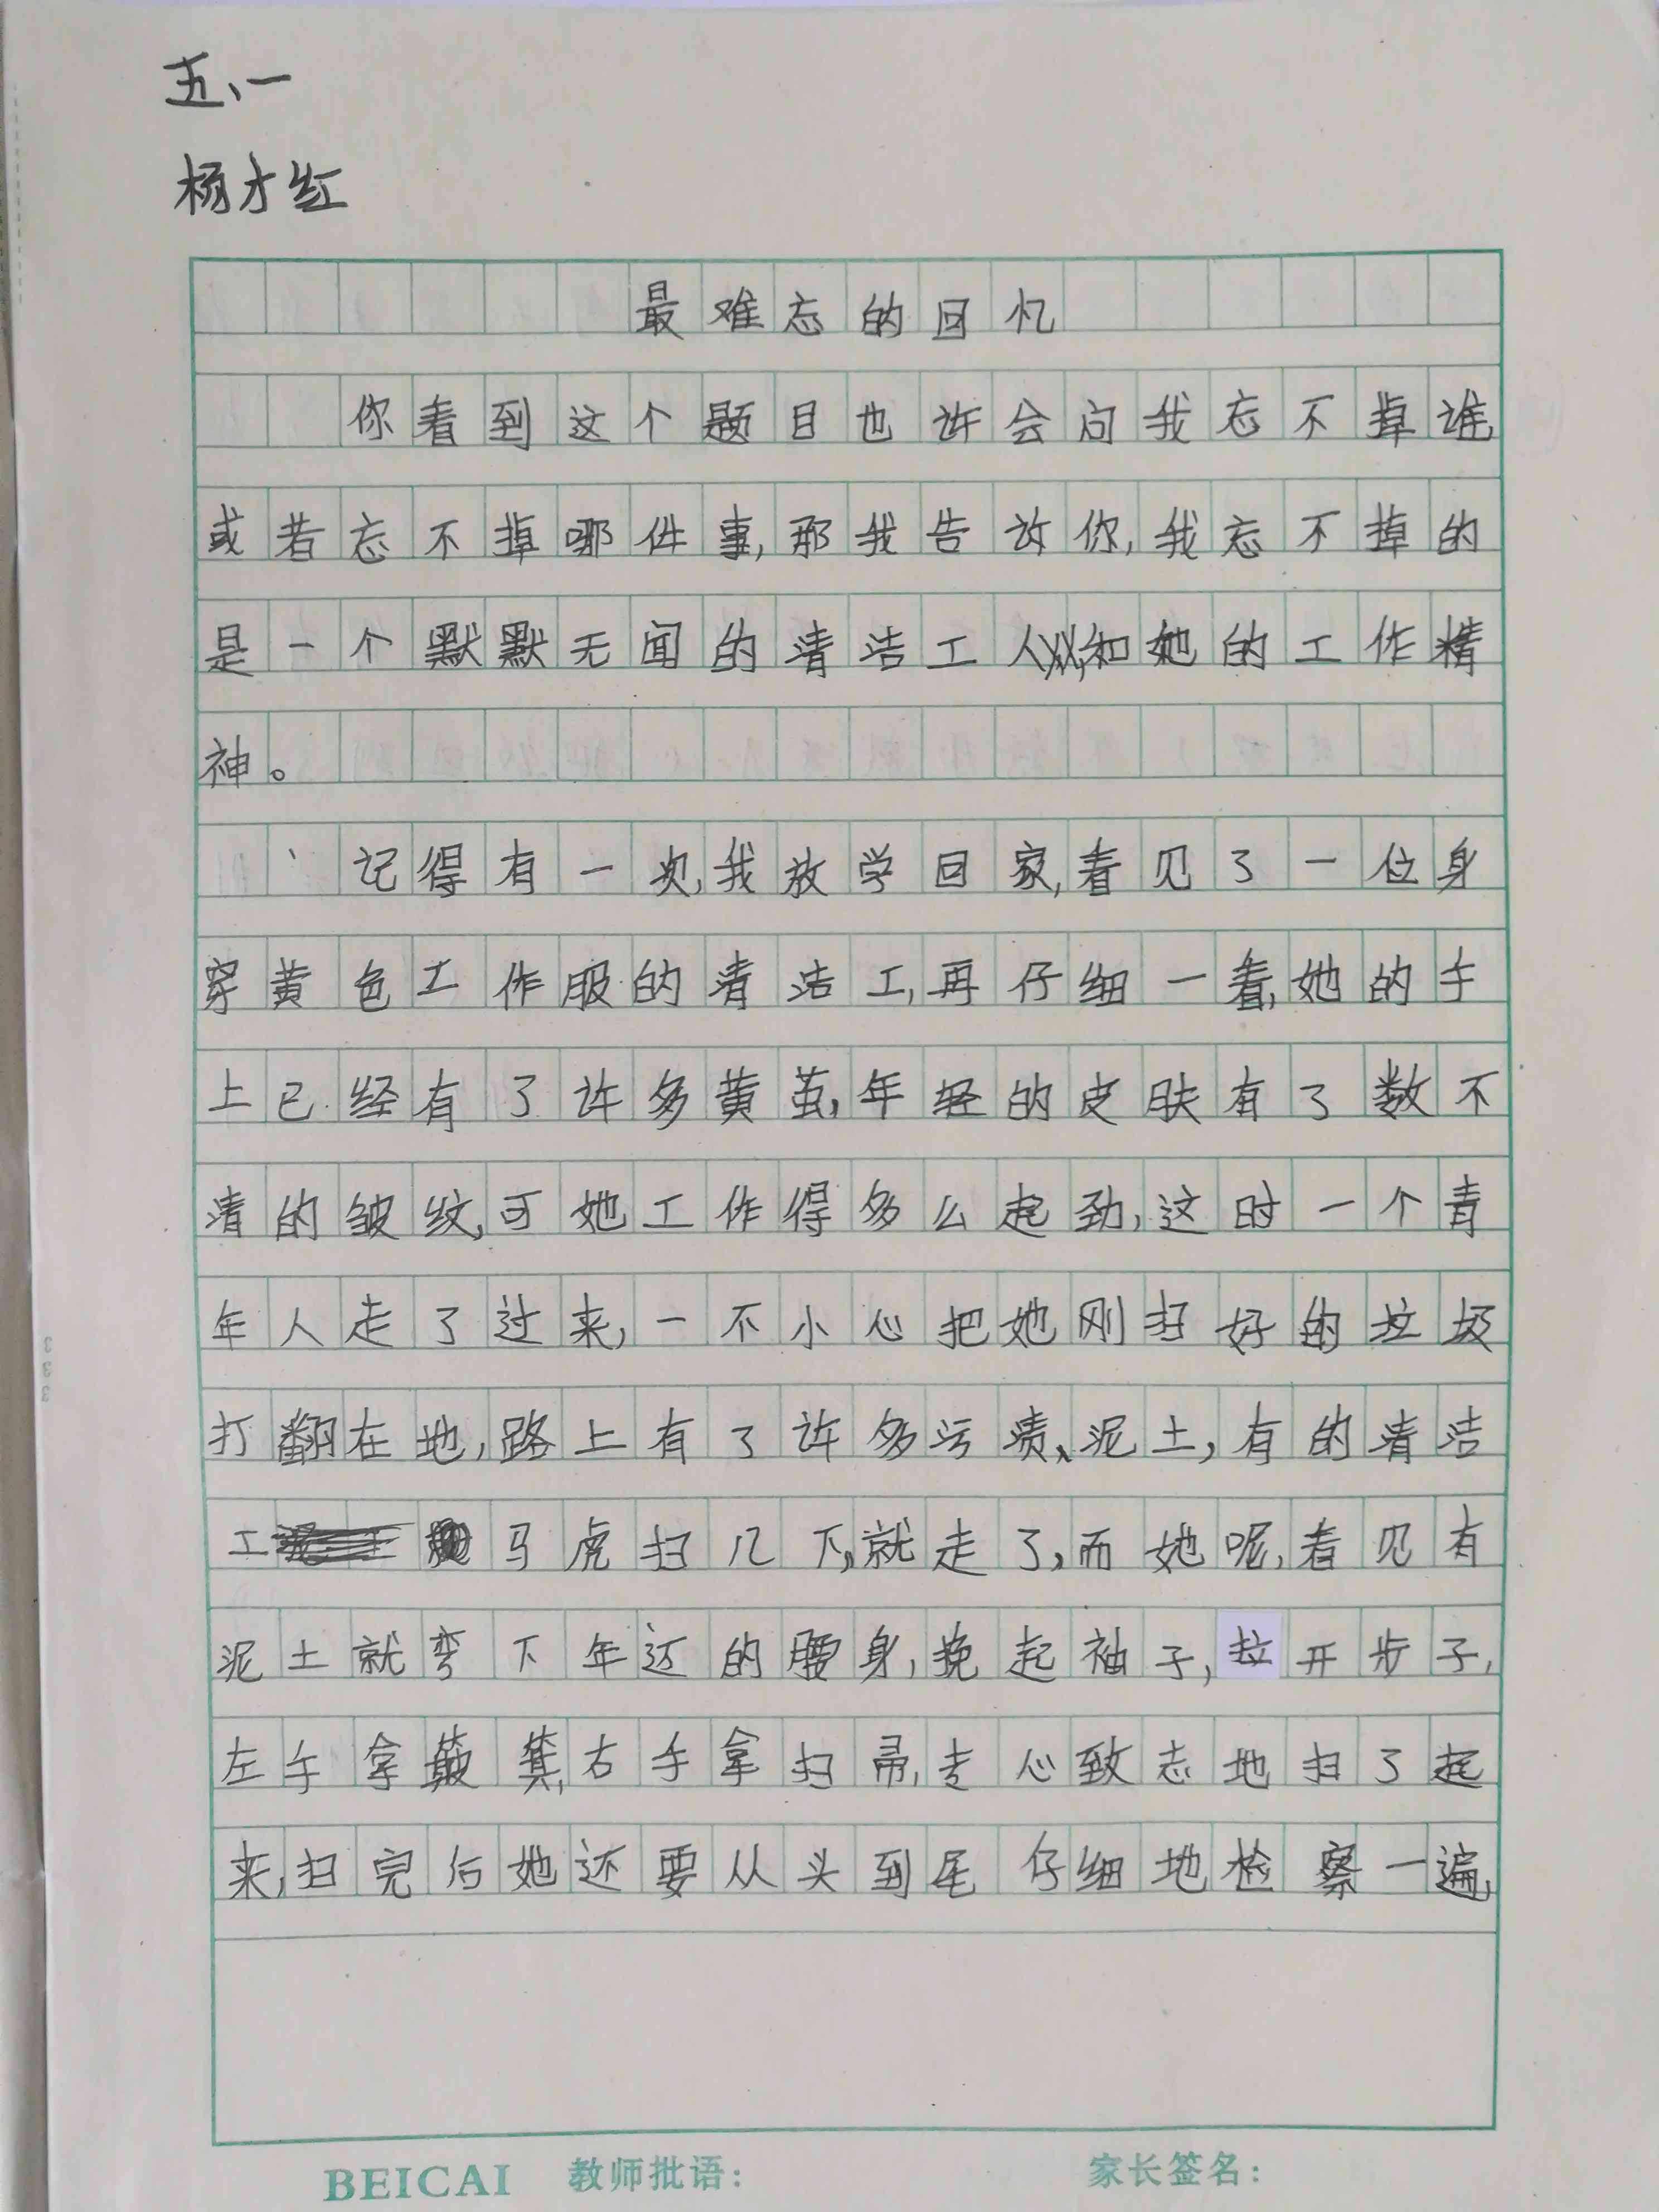 五、一
杨才红
最难忘的回忆
你看到这个题目也许会问我忘不掉谁,
或者忘不掉哪件事,那我告诉你,我忘不掉的
是一个默默无闻的清洁工人,和她的工作精
神。
记得有一次,我放学回家,看见了一位身
穿黄色工作服的清洁工,再仔细一看,她的手
上已经有了许多黄茧,年轻的皮肤有了数不
清的皱纹,可她工作得多么起劲,这时一个青
年人走了过来,一不小心把她刚扫好的垃圾
打翻在地,路上有了许多污渍、泥土,有的清洁
工马虎扫几下,就走了,而她呢,看见有
泥土就弯下年迈的腰身,挽起袖子,拉开步子,
左手拿簸箕,右手拿扫帚,专心致志地扫了起
来,扫完后她还要从头到尾仔细地检察一遍,
BEICAI 教师批语: 家长签名: